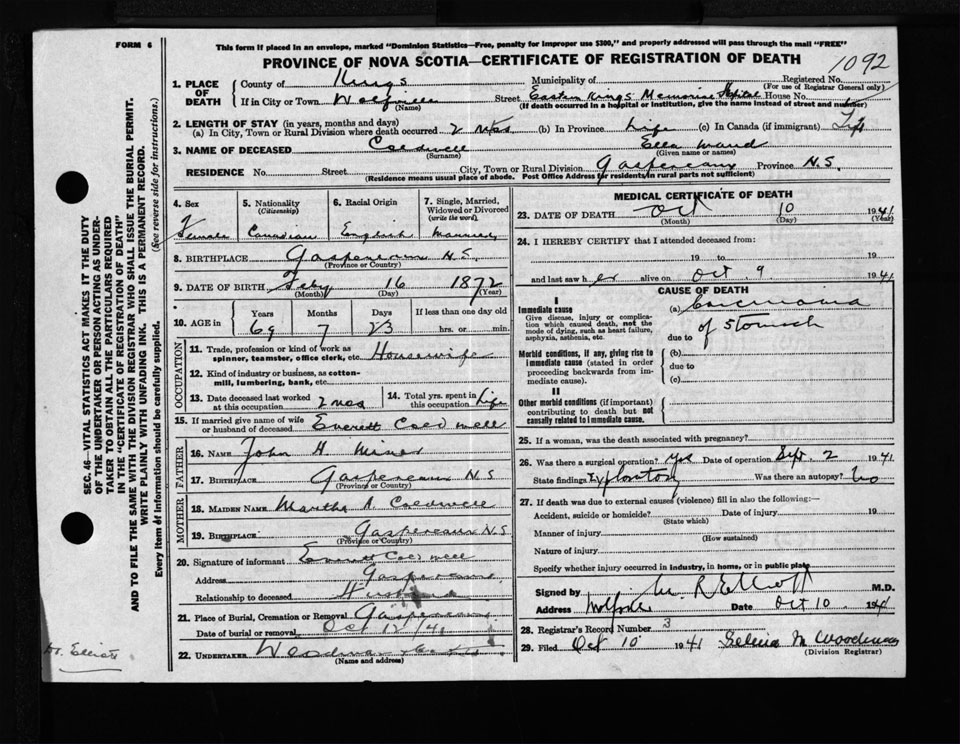 FORM 6
This form if placed in an envelope, marked "Dominion Statistics—Free, penalty for improper use $300," and properly addressed will pass through the mail "FREE"
PROVINCE OF NOVA SCOTIA—CERTIFICATE OF REGISTRATION OF DEATH
1092
1. PLACE OF DEATH County of Kings Municipality of Registered No.
(For use of Registrar General only)
If in City or Town Wolfville Street Eastern Kings Memorial Hospital House No.
(Name) (If death occurred in a hospital or institution, give the name instead of street and number)
2. LENGTH OF STAY (in years, months and days)
(a) In City, Town or Rural Division where death occurred 2 (b) In Province Life (c) In Canada (if immigrant) Life
3. NAME OF DECEASED Coldwell Ella Maud
(Surname) (Given name or names)
RESIDENCE No. Street City, Town or Rural Division Gaspereaux Province N.S.
(Residence means usual place of abode. Post Office Address for residents in rural parts not sufficient)
4. Sex
Female
5. Nationality
(Citizenship)
Canadian
6. Racial Origin
English
7. Single, Married, Widowed or Divorced
(write the word)
Married
8. BIRTHPLACE Gaspereaux N.S.
(Province or Country)
9. DATE OF BIRTH Feby 16 1872
(Month) (Day) (Year)
10. AGE in Years Months Days If less than one day old
69 7 23 hrs. or min.
OCCUPATION
11. Trade, profession or kind of work as spinner, teamster, office clerk, etc. Housewife
12. Kind of industry or business, as cotton-mill, lumbering, bank, etc.
13. Date deceased last worked at this occupation 2 mos
14. Total yrs. spent in this occupation Life
15. If married give name of wife or husband of deceased Everett Coldwell
FATHER
16. NAME John H Miner
17. BIRTHPLACE Gaspereaux N S
(Province or Country)
MOTHER
18. MAIDEN NAME Martha A Coldwell
19. BIRTHPLACE Gaspereaux N.S
(Province or Country)
20. Signature of informant Everett Coldwell
Address Gaspereaux
Relationship to deceased Husband
21. Place of Burial, Cremation or Removal Gaspereaux
Date of burial or removal Oct 12/41
22. UNDERTAKER
(Name and address)
MEDICAL CERTIFICATE OF DEATH
23. DATE OF DEATH Oct 10 1941
(Month) (Day) (Year)
24. I HEREBY CERTIFY that I attended deceased from:
19 to 19
and last saw her alive on Oct 9 1941
CAUSE OF DEATH
I
Immediate cause
Give disease, injury or complication which caused death, not the mode of dying, such as heart failure, asphyxia, asthenia, etc.
(a) Carcinoma
of Stomach
due to
Morbid conditions, if any, giving rise to immediate cause (stated in order proceeding backwards from immediate cause).
(b)
due to
(c)
II
Other morbid conditions (if important) contributing to death but not causally related to immediate cause.
25. If a woman, was the death associated with pregnancy?
26. Was there a surgical operation? yes Date of operation Sept 2 1941
State findings Exploratory Was there an autopsy? No
27. If death was due to external causes (violence) fill in also the following:—
Accident, suicide or homicide? Date of injury 19
(State which)
Manner of injury
(How sustained)
Nature of injury
Specify whether injury occurred in industry, in home, or in public place
Signed by M. R. Elliott M.D.
Address Wolfville Date Oct 10 1941
28. Registrar's Record Number 3
29. Filed Oct 10 1941 M Woodman
(Division Registrar)
SEC. 46—VITAL STATISTICS ACT MAKES IT THE DUTY
OF THE UNDERTAKER OR PERSON ACTING AS UNDERTAKER TO OBTAIN ALL THE PARTICULARS REQUIRED
IN THE "CERTIFICATE OF REGISTRATION OF DEATH"
AND TO FILE THE SAME WITH THE DIVISION REGISTRAR WHO SHALL ISSUE THE BURIAL PERMIT.
WRITE PLAINLY WITH UNFADING INK. THIS IS A PERMANENT RECORD.
Every item of information should be carefully supplied. (See reverse side for instructions.)
Dr. Elliott